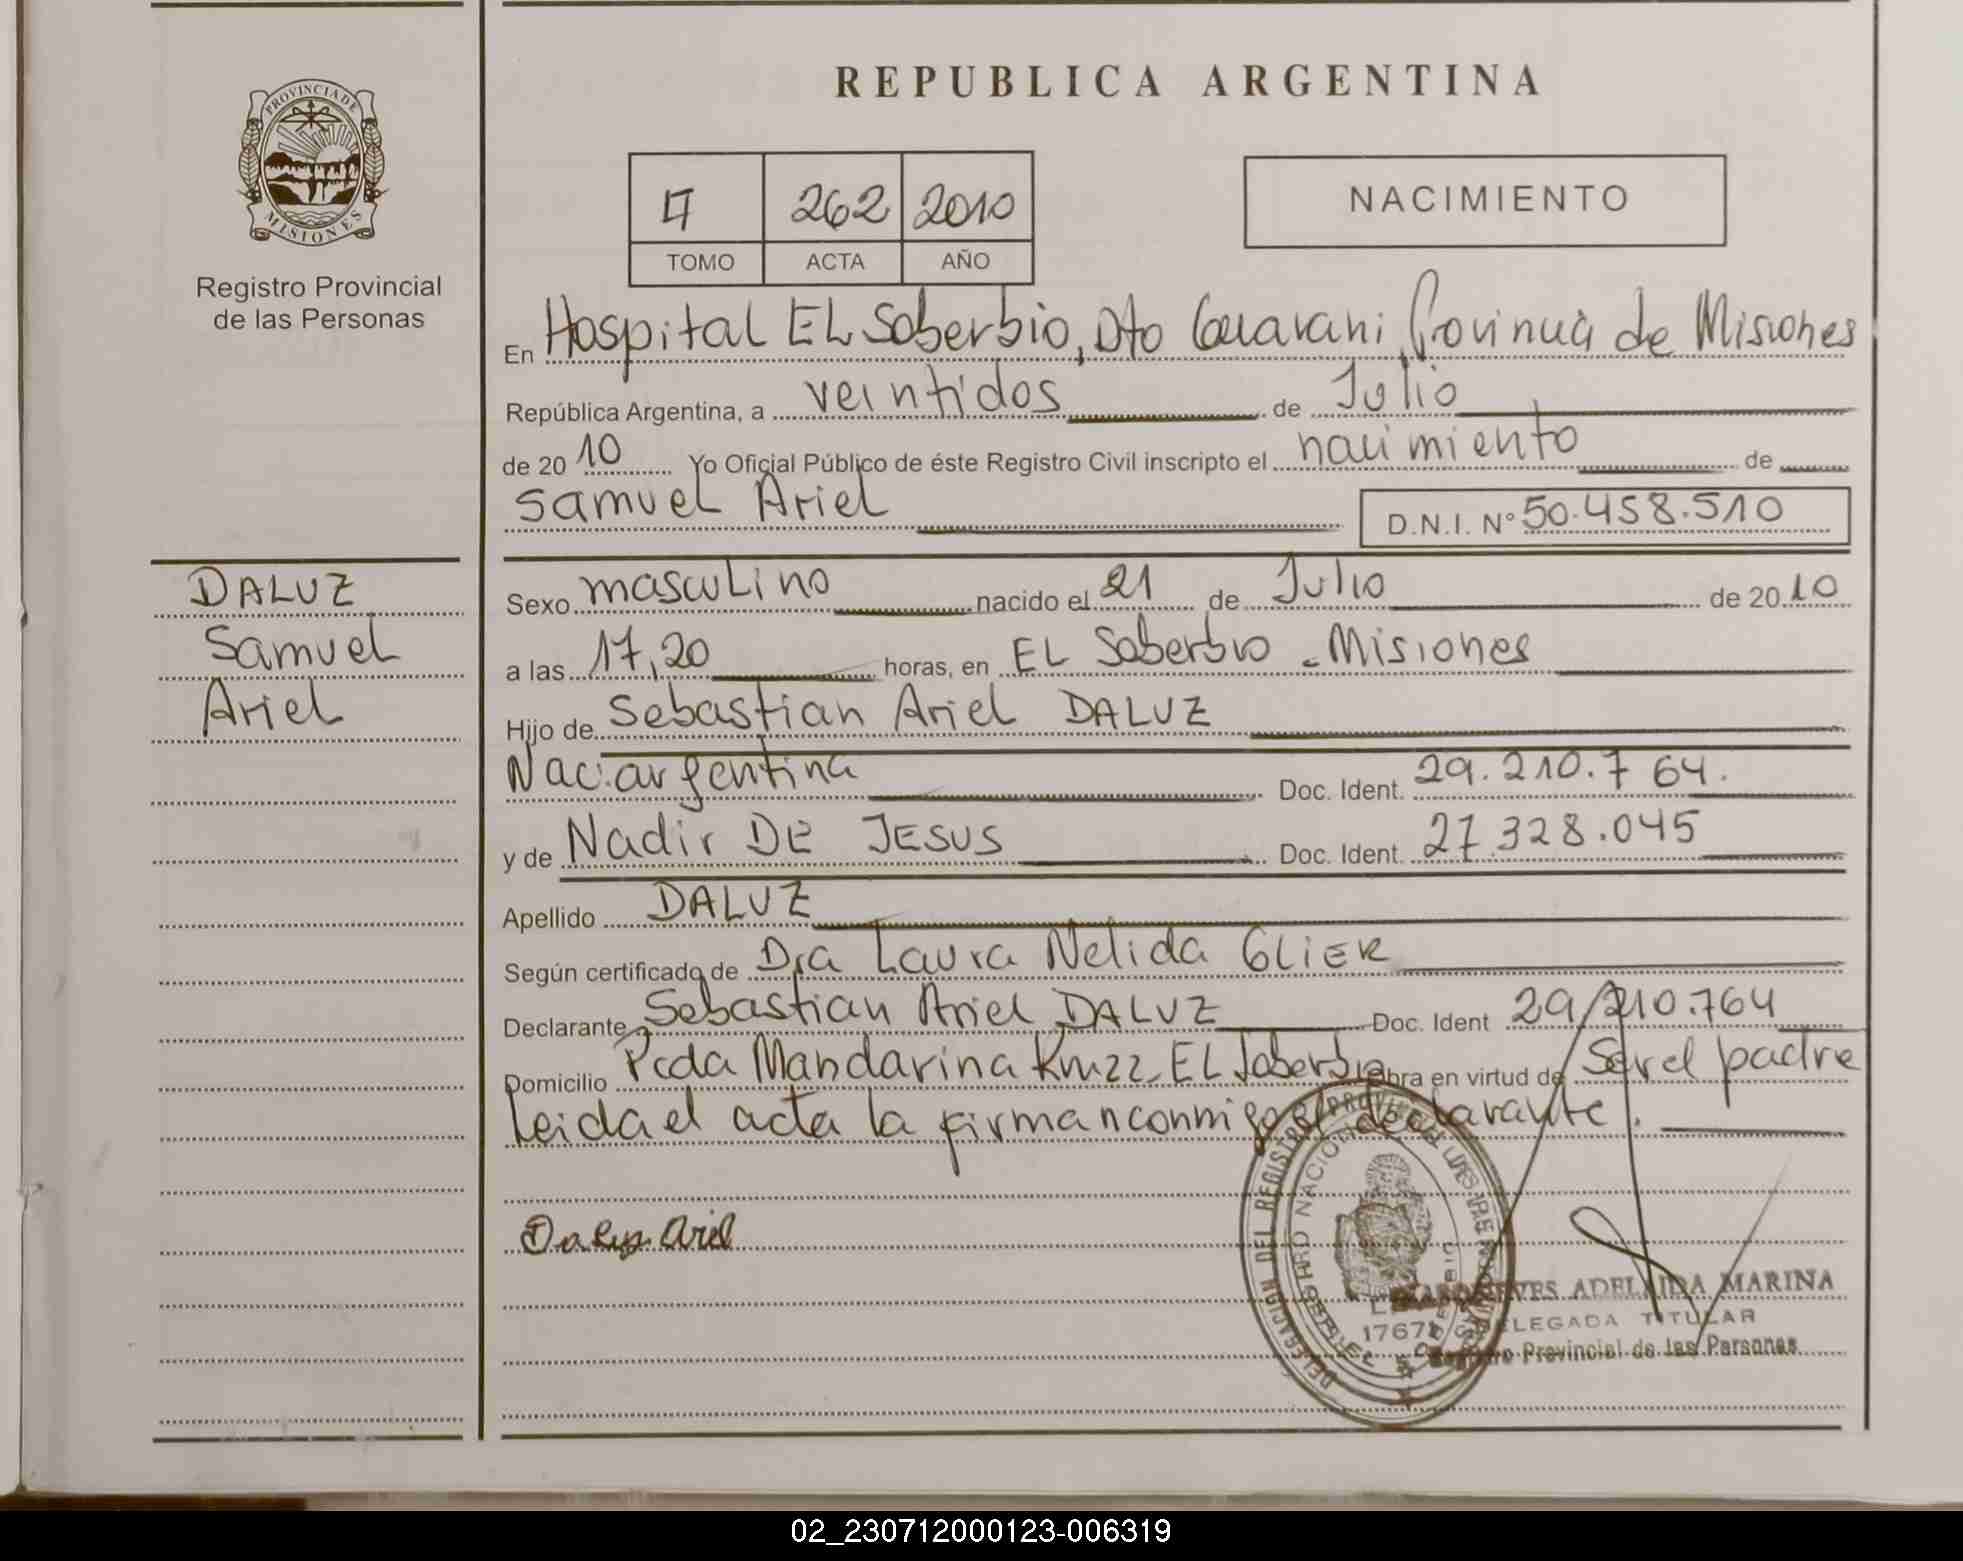 REPUBLICA ARGENTINA
PROVINCIA DE
MISIONES
Registro Provincial
de las Personas
262 2010
TOMO ACTA AÑO
NACIMIENTO
En Hospital EL Soberbio, Dto Guarani Provincia de Misiones
República Argentina, a veintidos de Julio
de 2010 Yo Oficial Público de éste Registro Civil inscripto el nacimiento de
Samuel Ariel D.N.I. Nº 50.458.510
DALUZ
Samuel
Ariel
Sexo masculino nacido el 21 de Julio de 2010
a las 17,20 horas, en EL Soberbio - Misiones
Hijo de Sebastian Ariel DALUZ
Nac. argentina Doc. Ident. 29.210.764.
y de Nadir DE JESUS Doc. Ident. 27.328.045
Apellido DALUZ
Según certificado de Dra Laura Nelida GLIER
Declarante Sebastian Ariel DALUZ Doc. Ident 29/210.764
Domicilio Pcda Mandarina Km22 EL Soberbio obra en virtud de Ser el padre
Leida el acta la firman conmigo el declarante.
Daluz Ariel
ADELAIDA MARINA
DELEGADA TITULAR
Registro Provincial de las Personas
02_230712000123-006319